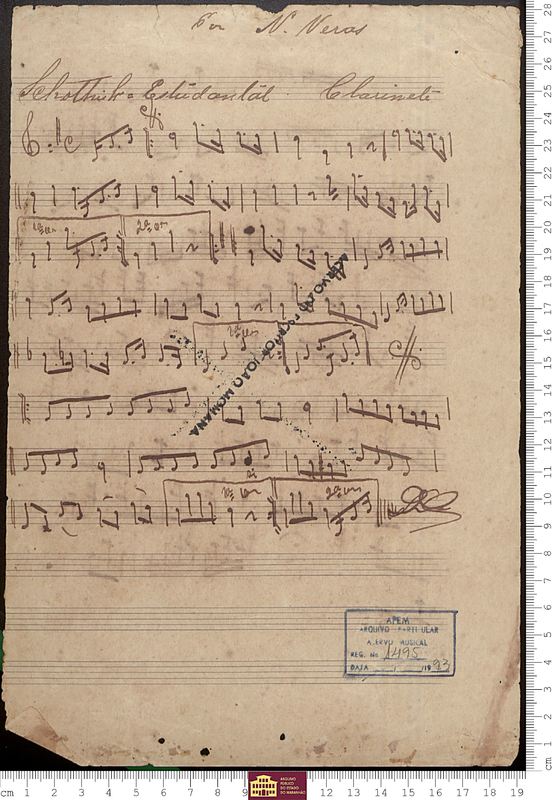 Por N. Veras
Schottisch = Estudantál. Clarinete
1ª vez 2ª vez
2ª vez
1ª vez 2ª vez
ACERVO DO ESCRITOR JOÃO MOHANA
APEM
ARQUIVO PARTICULAR
ACERVO MUSICAL
REG. No 1495
DATA / /1993
ARQUIVO
PÚBLICO
DO ESTADO
DO MARANHÃO
cm 1 2 3 4 5 6 7 8 9 12 13 14 15 16 17 18 19
28
27
26
25
24
23
22
21
20
19
18
17
16
15
14
13
12
11
10
9
8
7
6
5
4
3
2
1
cm